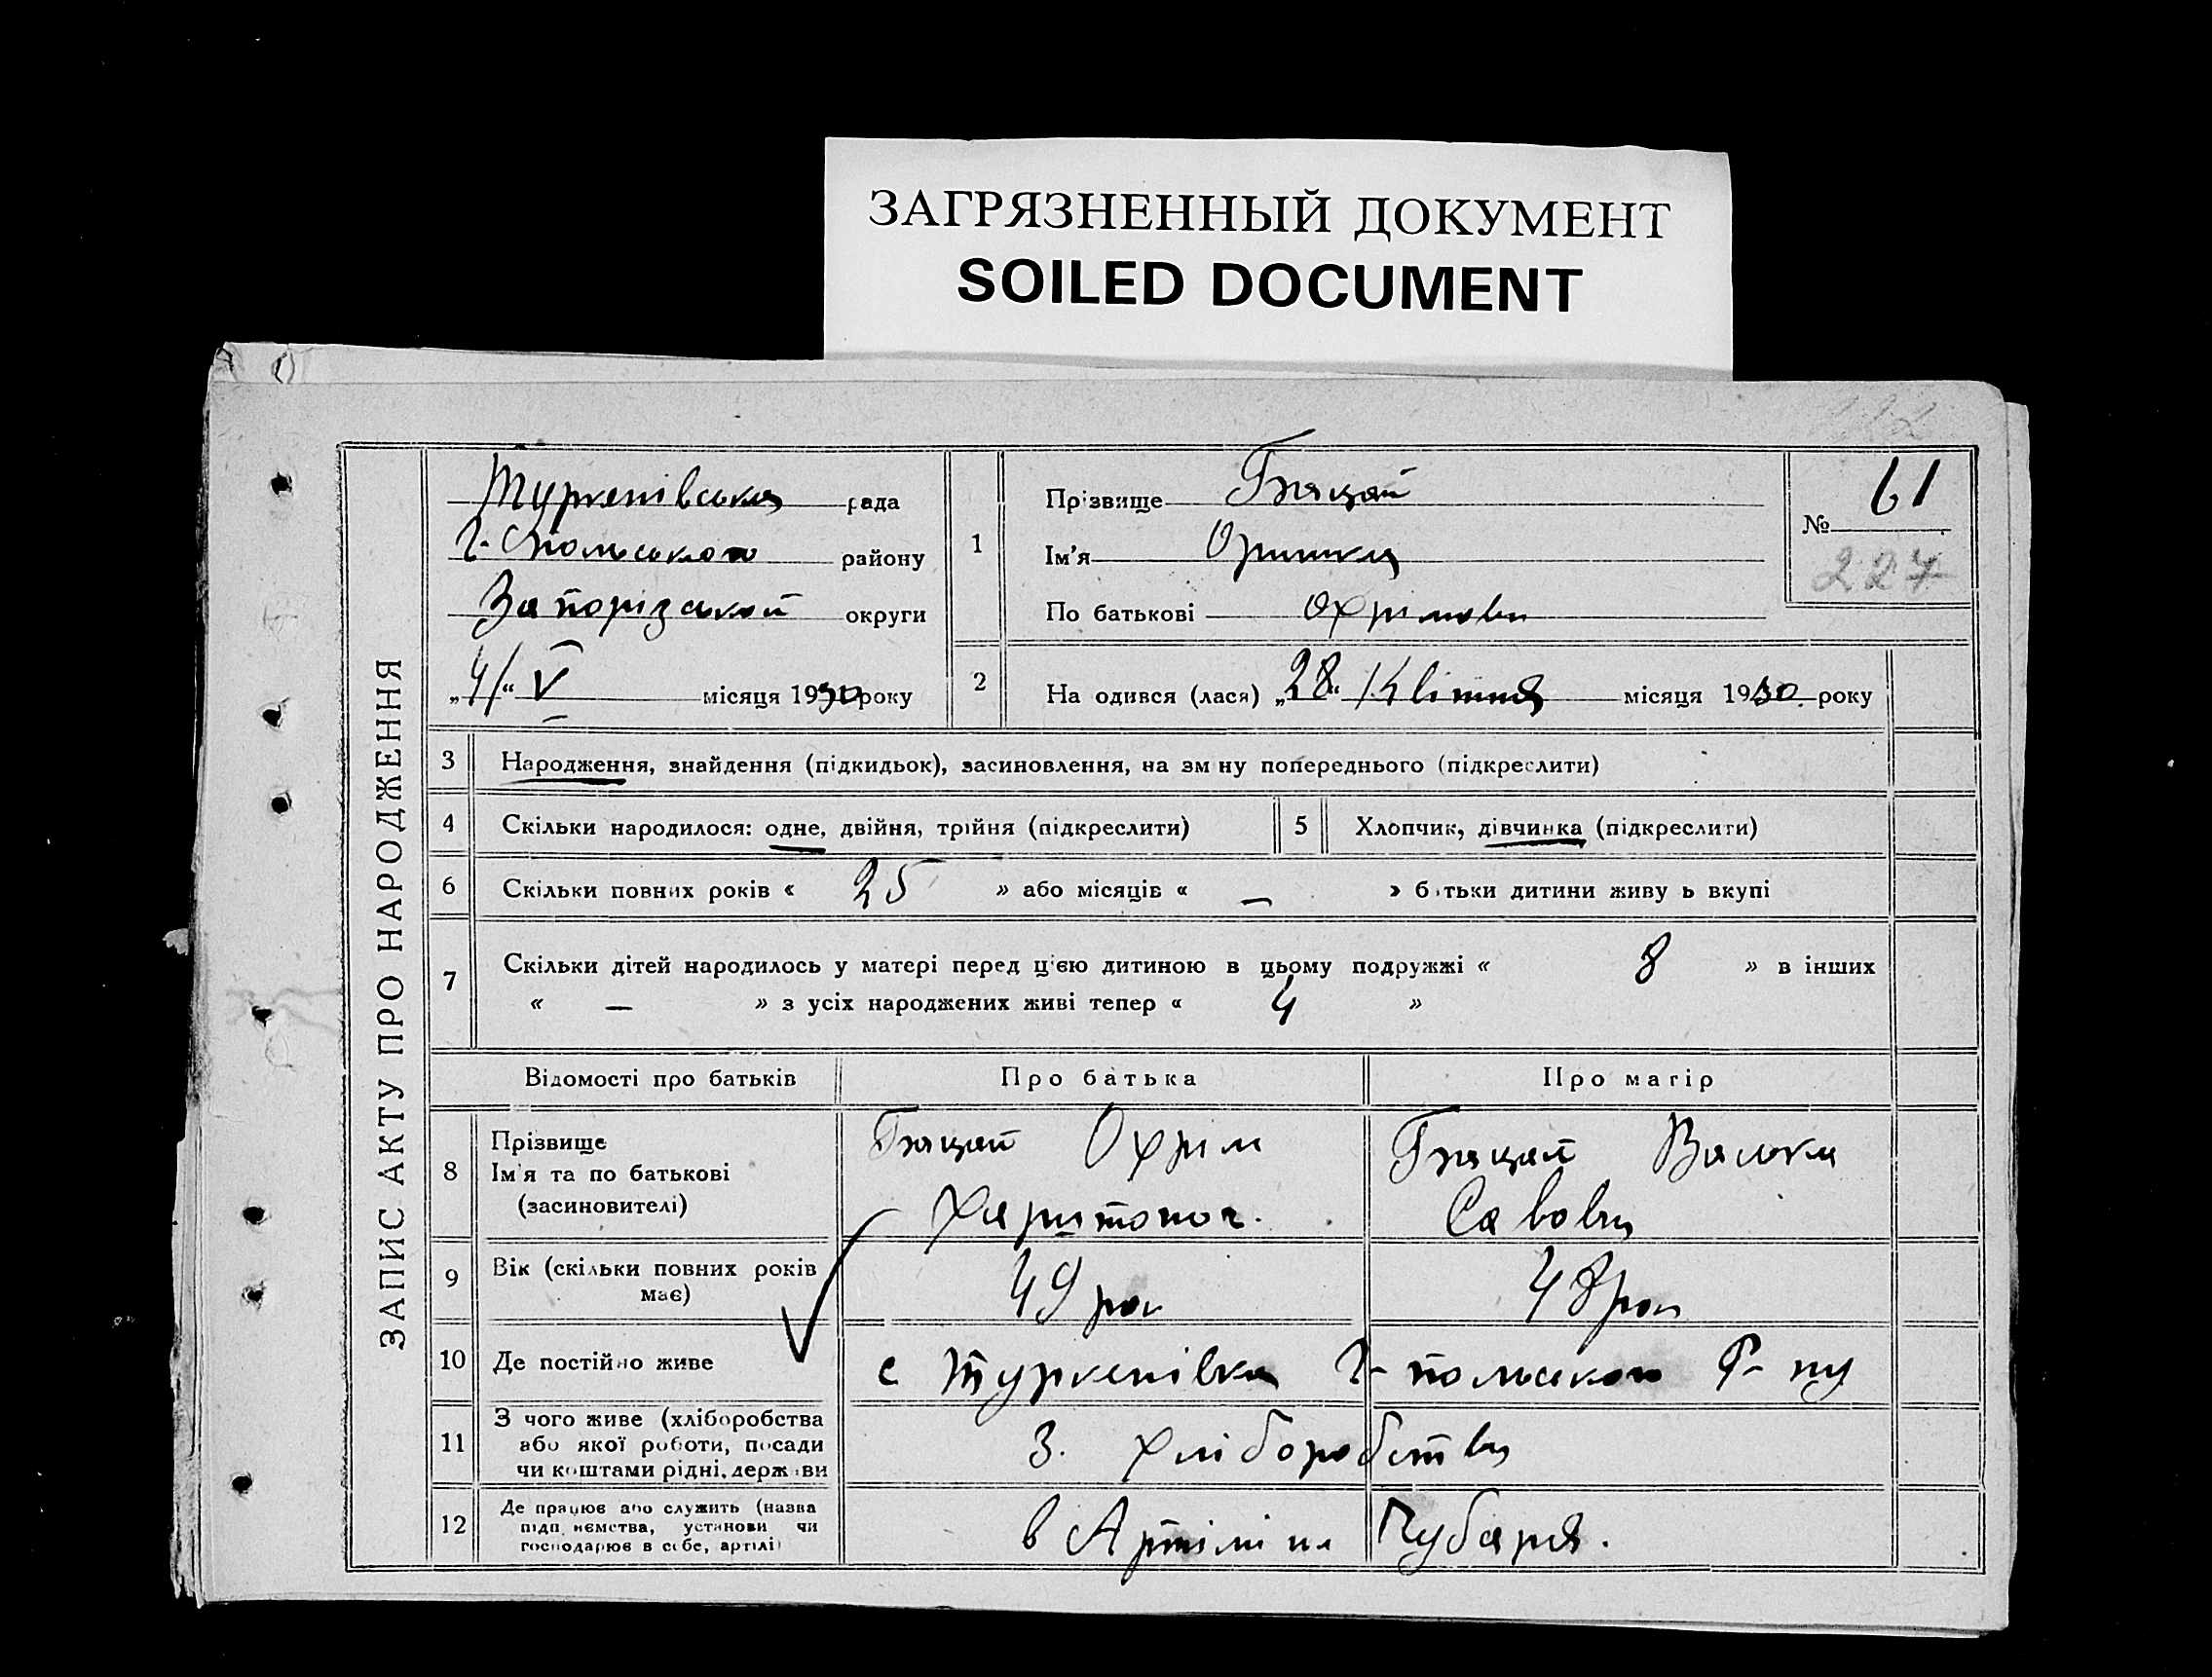 ЗАГРЯЗНЕННЫЙ ДОКУМЕНТ
SOILED DOCUMENT
ЗАПИС АКТУ ПРО НАРОДЖЕННЯ
Туркенівська рада
Г-Ппольського району
Запорізської округи
„4/“ V місяця 1930 року
1
Прізвище
Ім'я Оришка
По батькові Охрімовн
№ 61
227
2
На одився (лася) „28“ Квітня місяця 1930. року
3 Народження, знайдення (підкидьок), засиновлення, на зм ну попереднього (підкреслити)
4 Скільки народилося: одне, двійня, трійня (підкреслити)
5 Хлопчик, дівчинка (підкреслити)
6 Скільки повних років « 25 » або місяців « — » батьки дитини живу ь вкупі
7 Скільки дітей народилось у матері перед цією дитиною в цьому подружжі « 8 » в інших
« — » з усіх народжених живі тепер « 4 »
Відомості про батьків Про батька Про матір
8 Прізвище
Ім'я та по батькові
(засиновителі)
Охрім
Харитонов.
Савовн
9 Вік (скільки повних років
має)
49 рок
48 рок
10 Де постійно живе с Туркенівка Г-польського Р-ну
11 З чого живе (хліборобства
або якої роботи, посади
чи коштами рідні, держави
З. хліборобств
12 Де працює або служить (назва
підп. ємства, установи чи
господарює в себе, артілі)
в Артілі ім Чубаря.